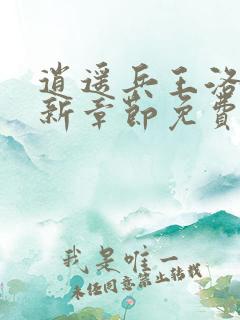 逍遥兵王洛
新章節免費
我是唯一
未經同意禁止轉載